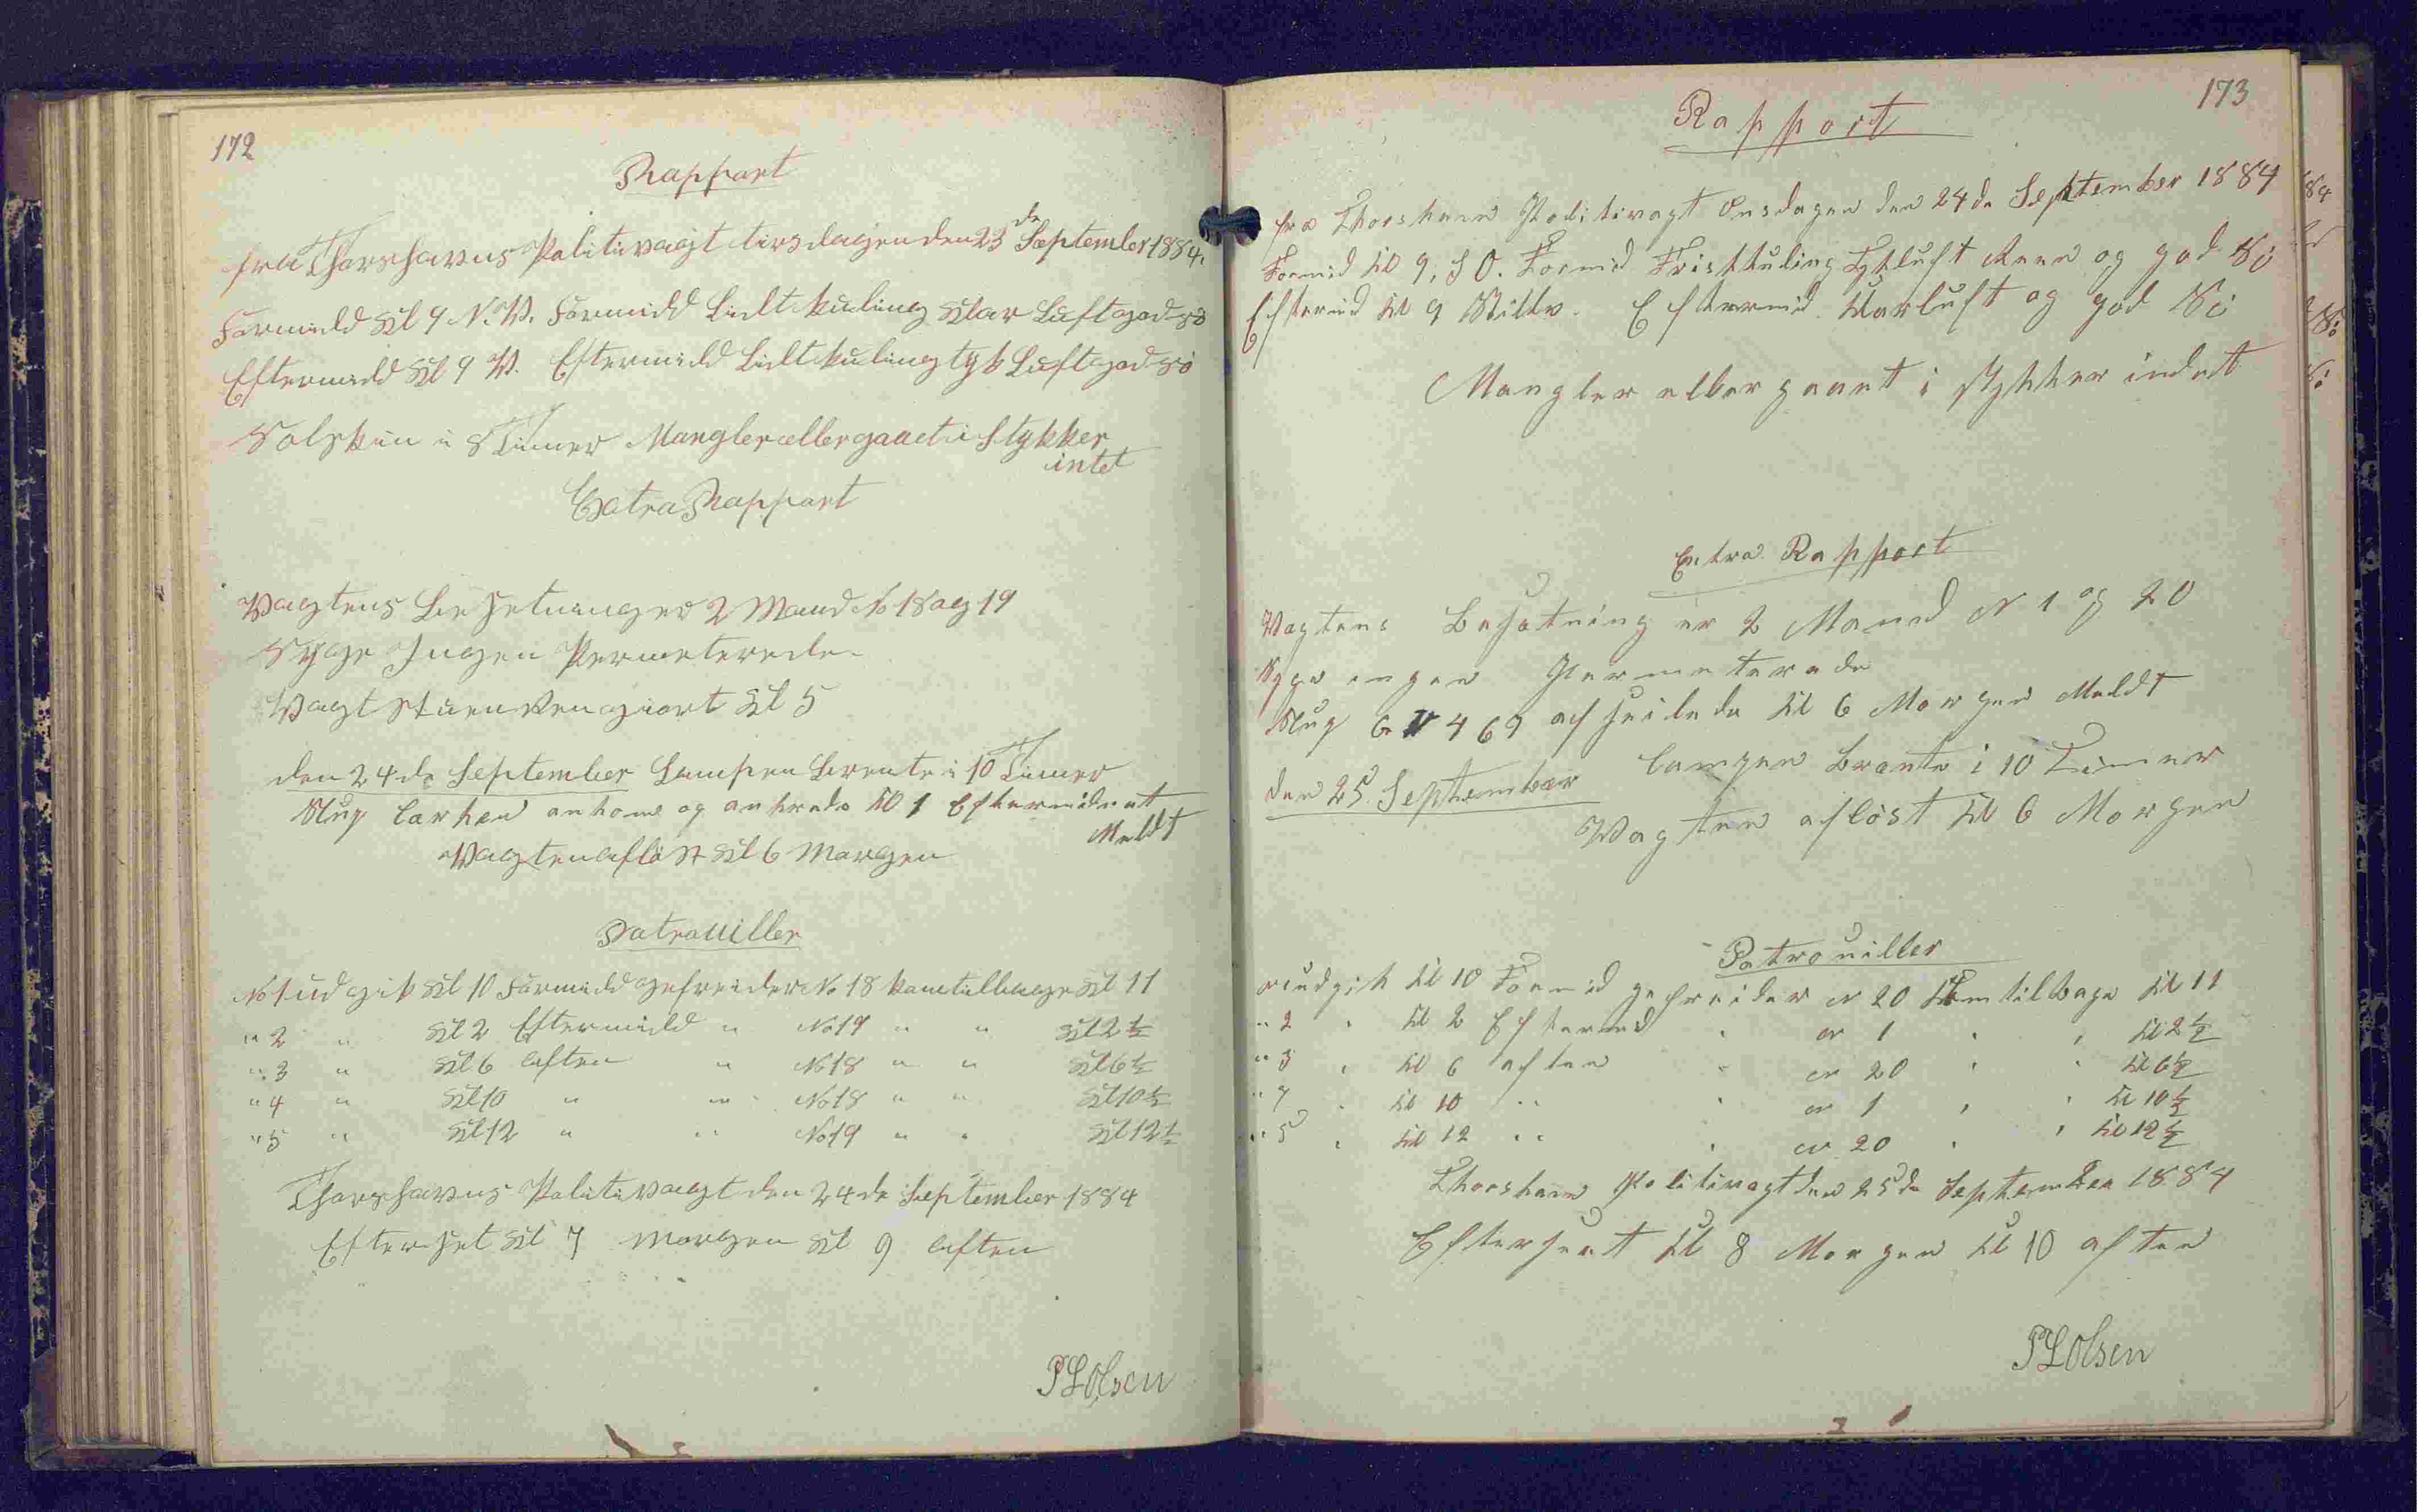 172
Rapport
fra Thorshavns Politivagt tirsdagen den 23de September 1884.
Formidd Kl 9 N.V. Formidd Lidt kuling Klar Luft god sö
Eftermidd Kl 9 V. Eftermidd Lidt kuling tyk Luft god sö
Solskin i 8 Timer Mangler eller gaaet i Stykker
intet
Extra Rapport
Vagtens Besetninger 2 Mand No 18 og 19
Syge Ingen Permeterede
Vagt Stuen Rengjort Kl 5
den 24de September Lampen brente i 10 Timer
Slup Larken ankom og ankrede Kl 1 Eftermidnat
Meldt
Vagten aflöst Kl 6 Morgen
Patrouiller
No 1 udgik Kl 10 Formidd gefreider No 18 kom tilbage Kl 11
" 2 " Kl 2 Eftermidd " No 19 " " Kl 2 ½
" 3 " Kl 6 Aften " No 18 " " Kl 6 ½
" 4 " Kl 10 " " No 18 " " Kl 10 ½
" 5 " Kl 12 " " No 19 " " Kl 12 ½
Thorshavns Politivagt den 24de September 1884
Efterset Kl 7 Morgen Kl 9 Aften
P L Olsen
173
Rapport
fra Thorshavn Politivagt Onsdagen den 24de September 1884
Formid Kl 9, S O. Formid Frisk kuling Tykluft Regn og god Sö
Eftermid Kl 9 Stille. Eftermid Klarluft og god Sö
Mangler eller gaaet i stykker indet
Extra Rapport
Vagtens Besætning er 2 Mand N 1 og 20
Syge ingen Permeterede
Slup G N 469 afseilede Kl 6 Morgen Meldt
den 25. September Lampen Brænte i 10 Timer
Vagten aflöst Kl 6 Morgen
Patrouiller
udgik Kl 10 Formid gefreider N 20 Kom tilbage Kl 11
" 2 " Kl 2 Eftermid " N 1 " " Kl 2 ½
" 3 " Kl 6 aften " N 20 " " Kl 6 ½
" 4 " Kl 10 " " N 1 " " Kl 10 ½
" 5 " Kl 12 " " N 20 " " Kl 12 ½
Thorshavn Politivagt den 25de September 1884
Efterseet Kl 8 Morgen Kl 10 aften
P L Olsen